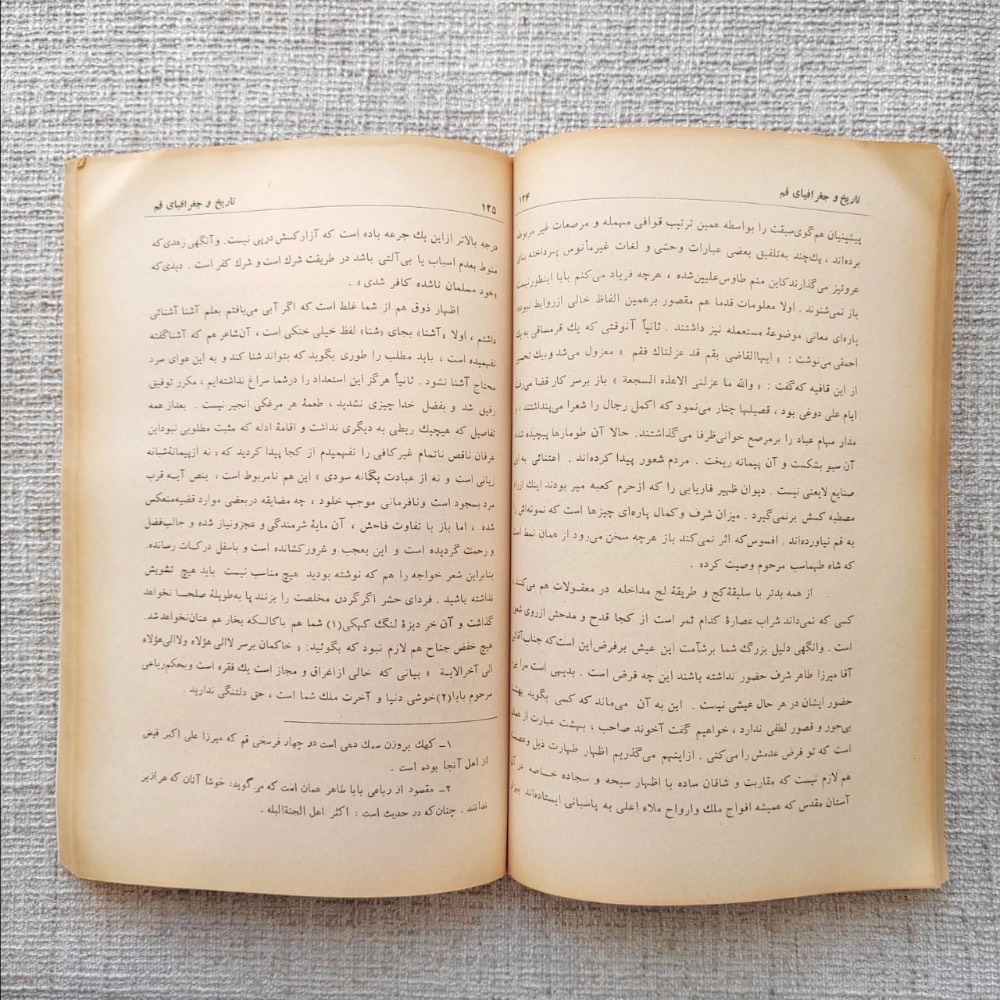 تاریخ و جغرافیای قم
۱۳۴
پیشینیان هم گوی سبقت را بواسطه همین ترتیب قوافی مهمله و مرصعات غیر مربوط
برده‌اند ، یك چند به‌تلفیق بعضی عبارات وحشی و لغات غیرمأنوس پرداخته بنای
عروتیز می‌گذارند کاین منم طاوس علیین شده ، هرچه فریاد می‌کنم بابا اینطورنیست
باز نمی‌شنوند . اولا معلومات قدما هم مقصور برهمین الفاظ خالی ازروابط نبوده
پاره‌ای معانی موضوعهٔ مستعمله نیز داشتند . ثانیاً آنوقتی که یك قرمساقی به یك
احمقی می‌نوشت : « ایهاالقاضی بقم قد عزلناك فقم » معزول می‌شد و بیك
از این قافیه که گفت : « والله ما عزلنی الاهذه السجعة » باز برسر کار قضا می‌رفت
ایام علی دوغی بود ، قصیلها چنار می‌نمود که اکمل رجال را شعرا می‌پنداشتند ، و
مدار مهام عباد را برمرصع خوانی ظرفا می‌گذاشتند. حالا آن طومارها پیچیده شده
آن سبو بشکست و آن پیمانه ریخت . مردم شعور پیدا کرده‌اند . اعتنائی به این
صنایع لایعنی نیست . دیوان ظهیر فاریابی را که ازحرم کعبه میر بودند اینك ازراه
مصطبه کسش برنمی‌گیرد . میزان شرف و کمال پاره‌ای چیزها است که نمونه‌اش را
به قم نیاورده‌اند . افسوس که اثر نمی‌کند باز هرچه سخن می‌رود از همان نمط است
که شاه طهماسب مرحوم وصیت کرده .
از همه بدتر با سلیقهٔ کج و طریقهٔ لج مداخله در معقولات هم می‌کنند ،
کسی که نمی‌داند شراب عصارهٔ کدام ثمر است از کجا قدح و مدحش ازروی شعور
است . وانگهی دلیل بزرگ شما برشآمت این عیش برفرض این است که جناب آقای
آقا میرزا طاهر شرف حضور نداشته باشند این چه فرض است . بدیهی است مرا بی
حضور ایشان در هر حال عیشی نیست . این به آن می‌ماند که کسی بگوید بهشت
بی‌حور و قصور لطفی ندارد ، خواهیم گفت آخوند صاحب ، بهشت عبارت از همان
است که تو فرض عدمش را می‌کنی . ازاینهم می‌گذریم اظهار طهارت ذیل و عصمت
هم لازم نیست که مقاربت و شاقان ساده با اظهار سبحه و سجاده خاصه در آن
آستان مقدس که همیشه افواج ملك و ارواح ملاء اعلی به پاسبانی ایستاده‌اند
۱۳۵
تاریخ و جغرافیای قم
درجه بالاتر ازاین یك جرعه باده است که آزار کسش درپی نیست. وآنگهی زهدی که
منوط بعدم اسباب یا بی‌آلتی باشد در طریقت شرك است و شرك کفر است . دیدی که
«خود مسلمان ناشده کافر شدی» .
اظهار ذوق هم از شما غلط است که اگر آبی می‌یافتم بعلم آشنا آشنائی
داشتم ، اولا «آشنا» بجای «شنا» لفظ خیلی خنکی است ، آن شاعر هم که آشنا گفته
نفهمیده است ، باید مطلب را طوری بگوید که بتواند شنا کند و به این هوای سرد
محتاج آشنا نشود . ثانیاً هرگز این استعداد را درشما سراغ نداشته‌ایم ، مکرر توفیق
رفیق شد و بفضل خدا چیزی نشدید ، طعمهٔ هر مرغکی انجیر نیست . بعداز همه
تفاصیل که هیچیك ربطی به دیگری نداشت و اقامهٔ ادله که مثبت مطلوبی نبود این
عرفان ناقص ناتمام غیر کافی را نفهمیدم از کجا پیدا کردید که « نه ازپیمانهٔ شبانه
زیانی است و نه از عبادت یگانه سودی » این هم نامربوط است ، بنص آیه قرب
مرد بسجود است و نافرمانی موجب خلود ، چه مضایقه دربعضی موارد قضیه منعکس
شده ، اما باز با تفاوت فاحش ، آن مایهٔ شرمندگی و عجزونیاز شده و جالب فضل
و رحمت گردیده است و این بعجب و غرور کشانده است و باسفل درکات رسانده.
بنابراین شعر خواجه را هم که نوشته بودید هیچ مناسب نیست باید هیچ تشویش
نداشته باشید . فردای حشر اگر گردن مخلصت را بزنند پا به‌طویلهٔ صلحا نخواهد
گذاشت و آن خر دیزهٔ لنگ کهکی(۱) شما هم با کالسکه بخار هم عنان نخواهد شد.
هیچ خفض جناح هم لازم نبود که بگوئید: « خاکمان برسر لاالی هؤلاء ولاالی هؤلاء
الی آخرالایـة » بیانی که خالی ازاغراق و مجاز است یك فقره است وبحکم رباعی
مرحوم بابا(۲) خوشی دنیا و آخرت ملك شما است ، حق دلتنگی ندارید .
۱ــ کهك بروزن سمك دهی است دو چهار فرسخی قم که میرزا علی اکبر فیض
از اهل آنجا بوده است .
۲ــ مقصود از رباعی بابا طاهر همان است که می‌گوید: خوشا آنان که هر از بر
ندانند . چنان‌که در حدیث است : اکثر اهل الجنةالبله .